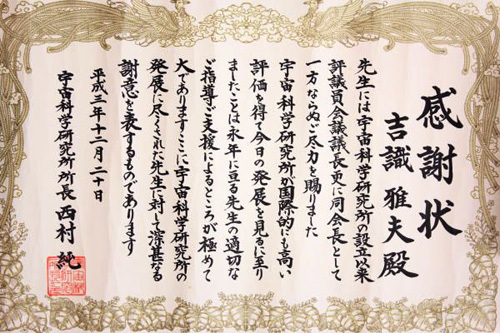 感謝状
吉識雅夫殿
先生には宇宙科学研究所の設立以来
評議員会議議長更に同会長として
一方ならぬご尽力を賜りました
宇宙科学研究所が国際的にも高い
評価を得て今日の発展を見るに至り
ましたことは永年に亘る先生の適切な
ご指導ご支援によるところが極めて
大でありますここに宇宙科学研究所の
発展に尽くされた先生に対して深甚なる
謝意を表するものであります
平成三年十二月二十日
宇宙科学研究所所長西村純